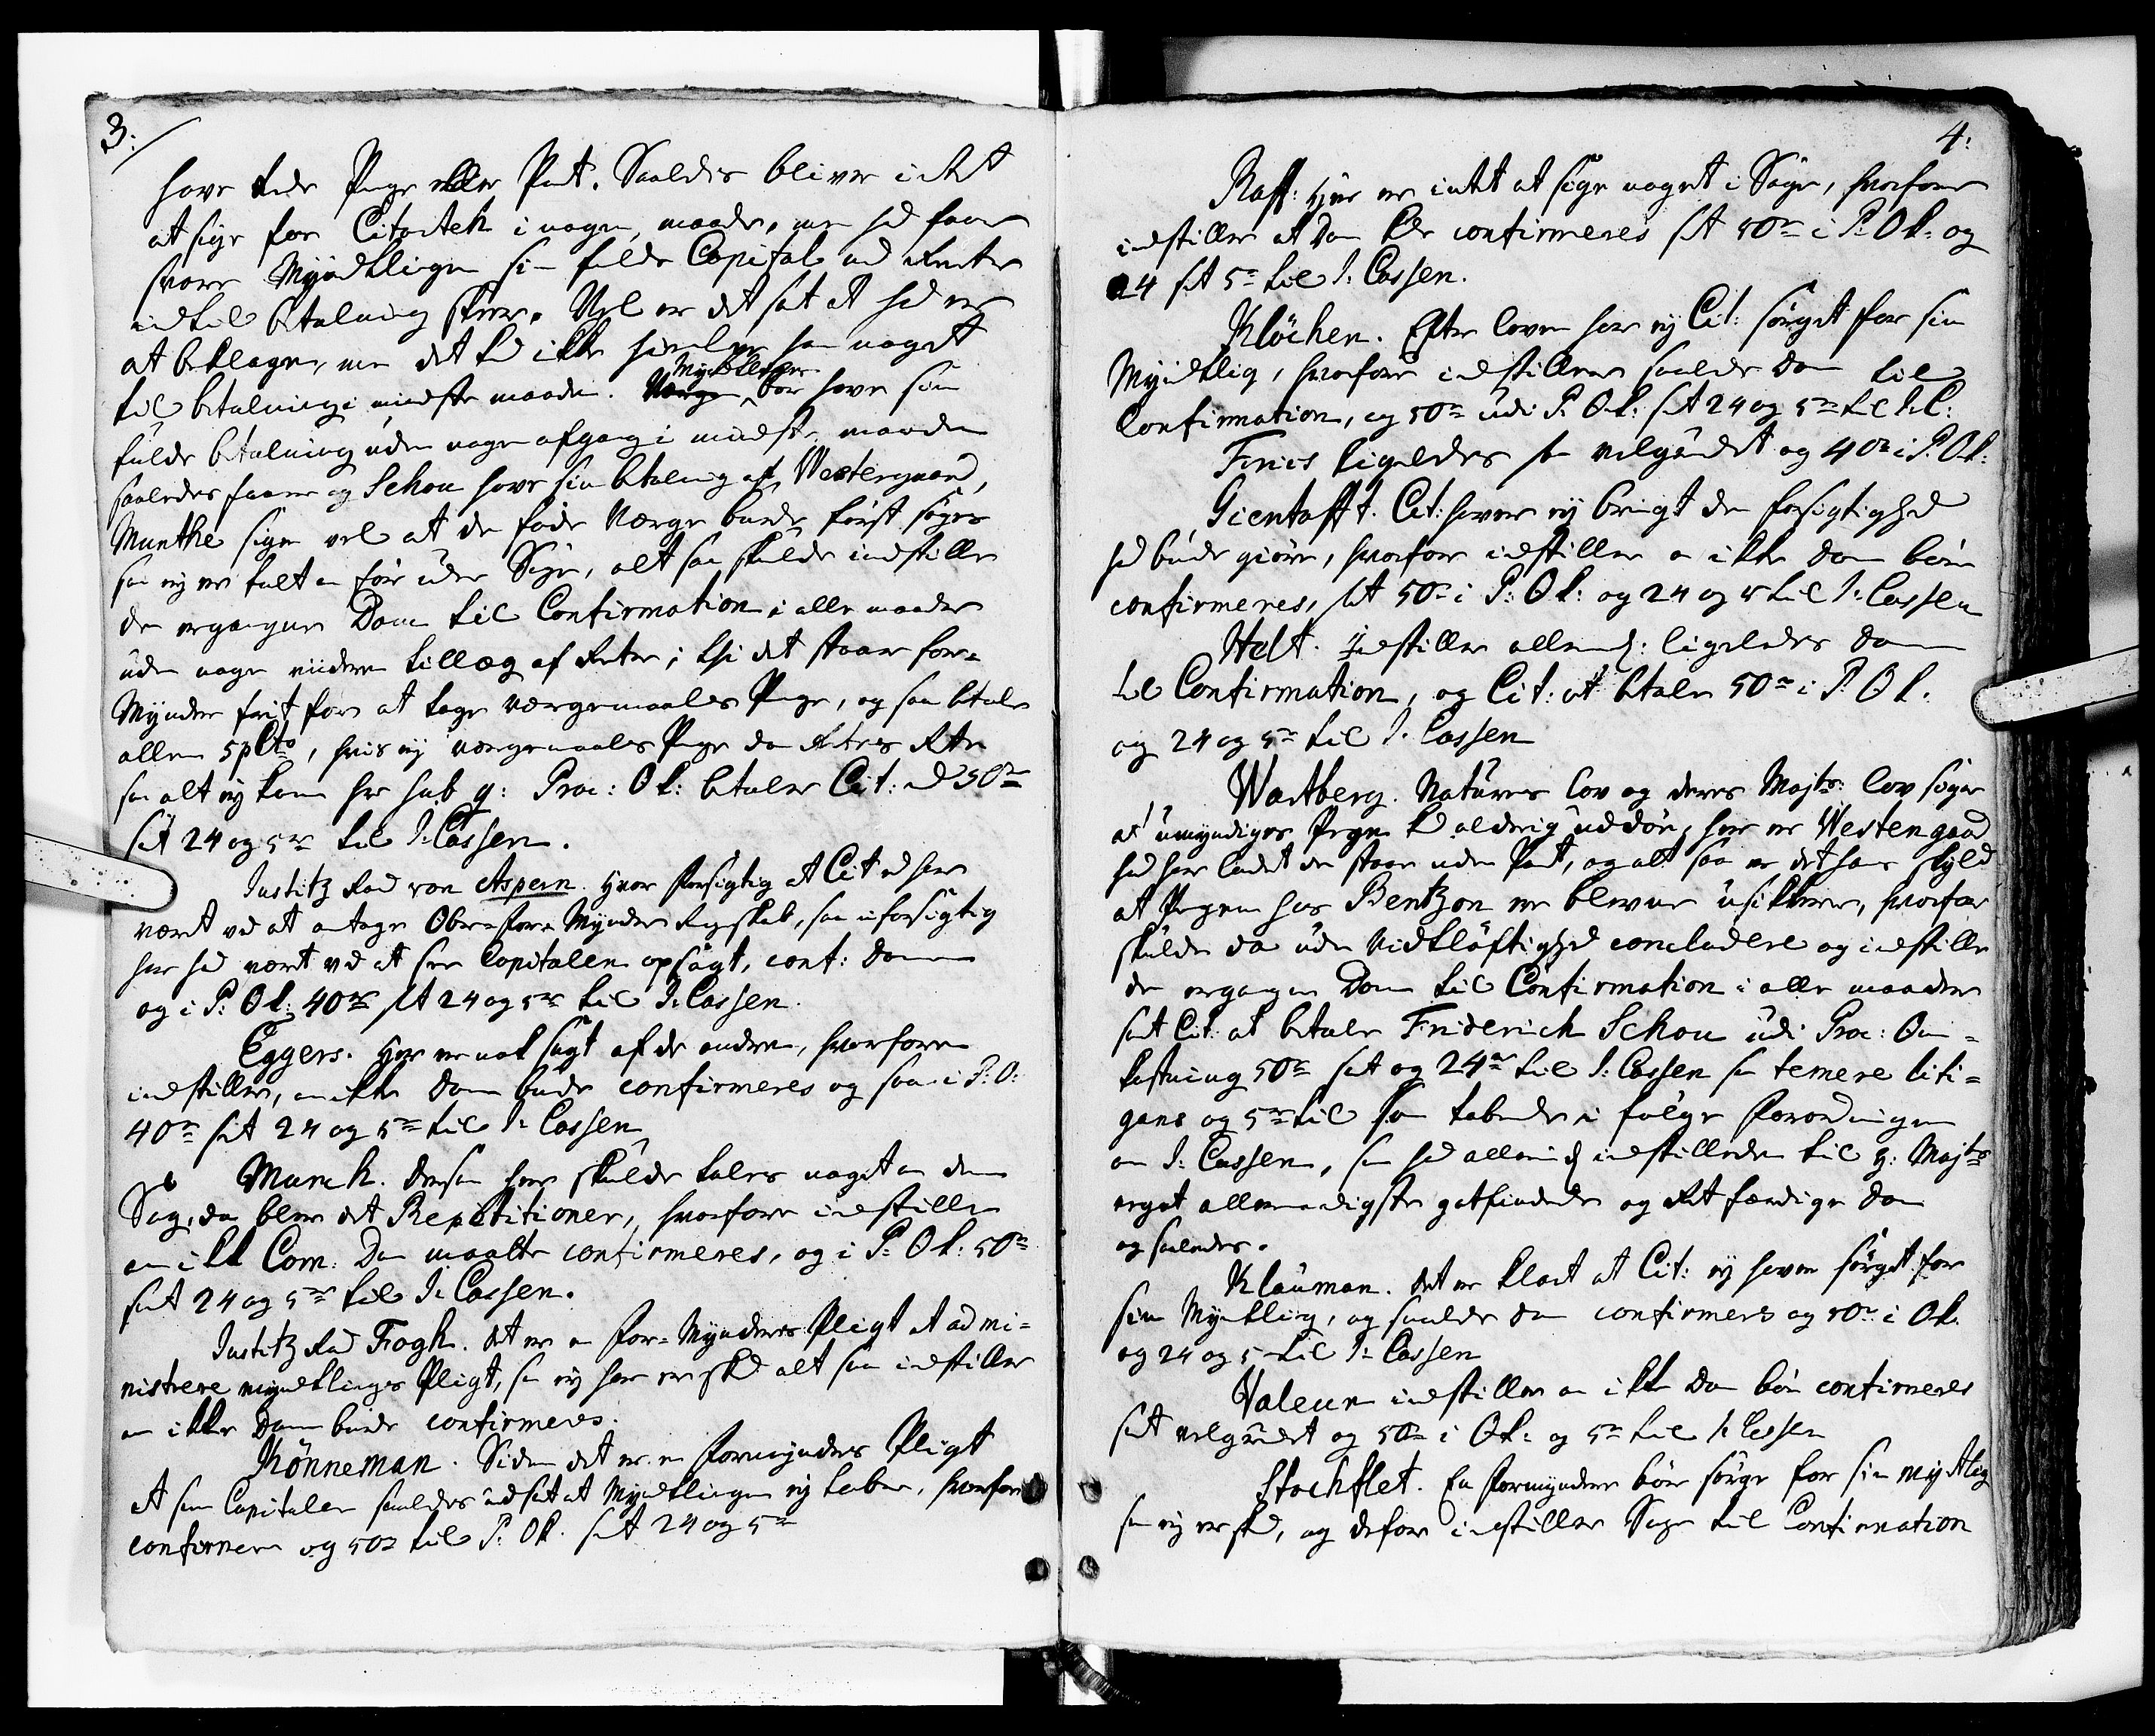 3:
have stede Penge eller Pant. Saaledes bliver intet
at sige for Citanten i nogen maade, men hand faar
svare Myndtlingen sin fulde Capital med Renter
indtil betaling skeer. Vel er det sat at hand er
at beklage, men det kand ikke hielpe ham noget
til betaling i mindste maade. Myndtlingen bør have sin
fulde betaling uden nogen afgang i mindste maade
saaledes faaer og Schou have sin betaling af Westergaard,
Munthe siger vel at de føde Værge burde først søges
som ej er talt om før uden Sige, alt saa skulde indstille
den ergangne Dom til Confirmation i alle maader
uden nogen videre tillæg af Renter; thi det staar for-
Mynder frit for at tage værgemaals Penge, og saa betale
allene 5 pCto, hvis ej værgemaals Penge da
saa alt ej kom her sub q: Proc: Ok: betaler Cit: med 50 rd
samt 24 og 5 rd til J: Cassen.
Justitz Raad von Aspern. Hvor forsigtig at Cit ed har
været ved at antage Ober-for-Mynder Regnskab, saa uforsigtig
har hand vært ved at see Capitalen opsagt, conf: Dommen
og i P: Ok: 40 rd samt 24 og 5 rd til J: Cassen.
Eggers. Her er nok sagt af de andre, hvorfore
indstiller, om ikke Dom burde confirmeres og saa i P: O:
40 rd samt 24 og 5 rd til J: Cassen
Munch. Dersom her skulde tales noget om denne
Sag, da blev det Repetitioner, hvorfore indstiller
om ikke Com: Dom maatte confirmeres, og i P: Ok: 50 rd
samt 24 og 5 rd til J: Cassen.
Justitz Raad Fogh. Det er en for-Mynders Pligt at admi-
nistrere myndtlinges Pligt, som ej her er skeed alt saa indstiller
om ikke Dom burde confirmeres.
Könneman. Siden det er en formynders Pligt
at see Capitalen saaledes udsat at Myndtlingen ej taber, hvorfore
confirmere og 50 rd til P: Ok. samt 24 og 5 rd
4:
Raff: Her er intet at sige noget i Sagen, hvorfore
indstiller at Dom bør confirmeres samt 50 rd i P: Ok: og
24 samt 5 rd til J: Cassen.
Klöcker. Efter loven har ej Cit: sørget for sin
Myndtling, hvorfore indstiller saaledes Dom til
Confirmation, og 50 rd udi P: Ok: samt 24 og 5 rd til J: C:
Friis ligeledes som velgrundet og 40 rd i P: Ok:
Gientofft. Cit: haver ej brugt den forsigtighed
hand burde giøre, hvorfore indstiller om ikke Dom bør
confirmeres, samt 50 rd i P: Ok: og 24 og 5 til J: Cassen
Holt. Indstiller allerund: ligeledes Dom
til Confirmation, og Cit: at betale 50 rd i P: Ok:
og 24 og 5 rd til J: Cassen
Wartberg. Naturens lov og deres Majts: lov siger
at umyndiges Penge kand aldrig uddøe, her er Westergaard
hand har ladet dem staae uden Pant, og alt saa er det hans skyld
at Pengene hos Bentzon er blevne usikkere, hvorfore
skulde da uden Vidtløftighed concludere og indstille
den ergangne Dom til Confirmation i alle maader
samt Cit: at betale Friderich Schou udi Proc: Om-
kostning 50 rd samt og 24 rd til J: Cassen som temere liti-
gans og 5 rd til som tabende i følge Forordningen
om J: Cassen, som hand allerund indstilleden til H: Majts
eget allernaadigste gotfindende og Retfærdige Dom
og saaledes.
Klauman. Det er klart at Cit: ej haver sørget for
sin Myndtling, og saaledes Dom confirmeres og 50 rd i Ok:
og 24 og 5 til J: Cassen
Valeur indstiller om ikke Dom bør confirmeres
samt velgrundet og 50 rd i Ok: og 5 rd til J: Cassen
Stochflet. En formynder bør sørge for sin myndtling
som ej er skeed, og derfore indstiller Sagen til Confirmation